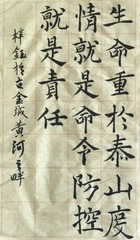 生命重於泰山度
情就是命令防控
就是責任
梓鈺於古金城黃河之畔